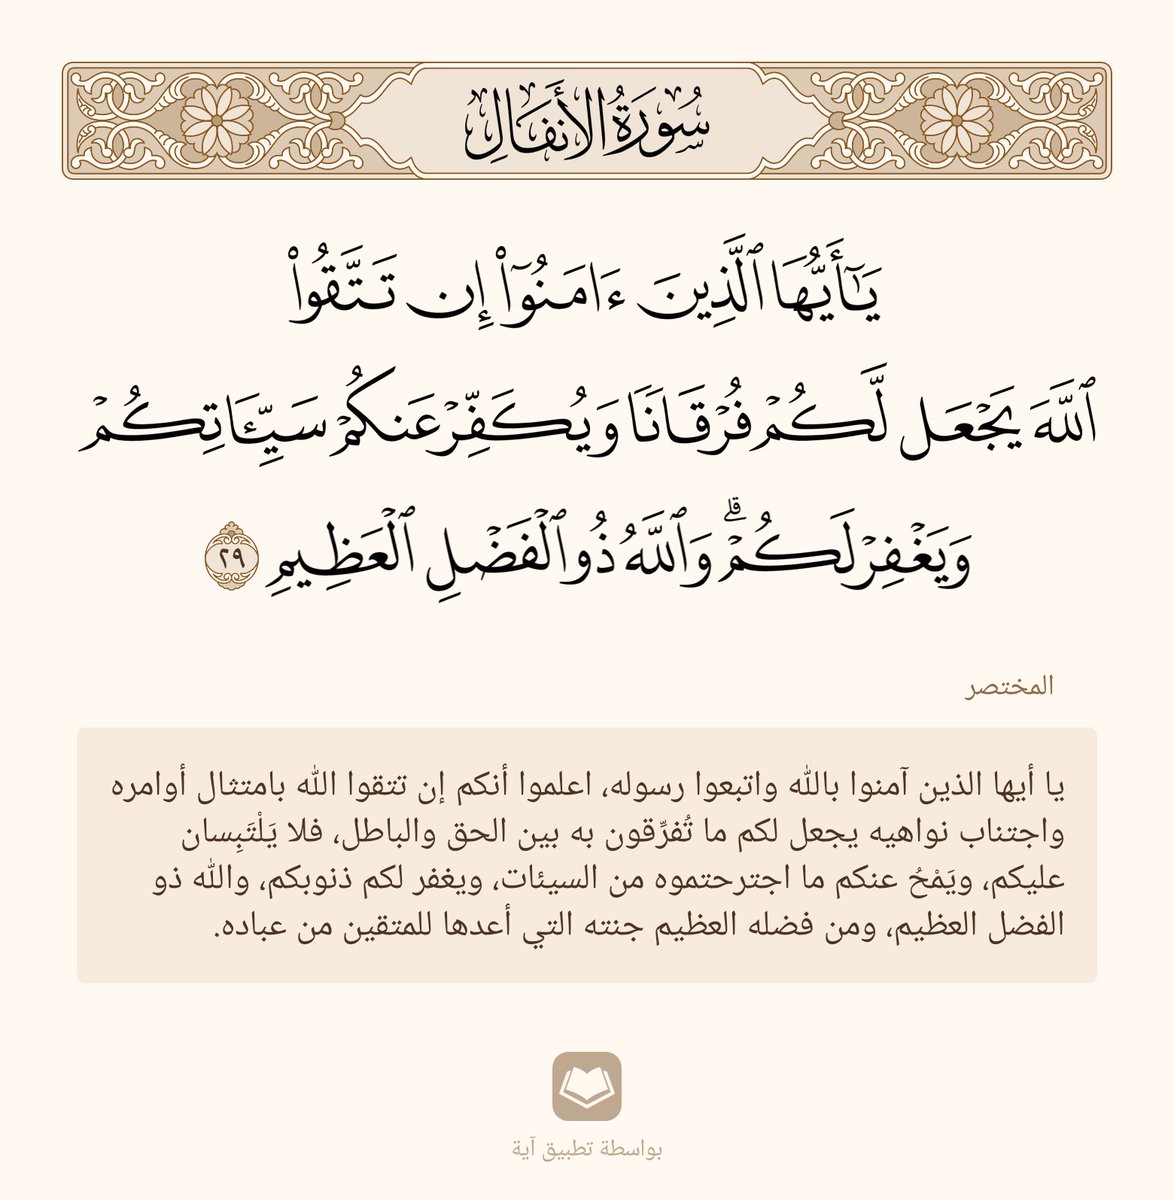 سُورَةُ الأَنفَالِ
يَـٰٓأَيُّهَا ٱلَّذِينَ ءَامَنُوٓا۟ إِن تَتَّقُوا۟
ٱللَّهَ يَجْعَل لَّكُمْ فُرْقَانًا وَيُكَفِّرْ عَنكُمْ سَيِّـَٔاتِكُمْ
وَيَغْفِرْ لَكُمْ ۗ وَٱللَّهُ ذُو ٱلْفَضْلِ ٱلْعَظِيمِ ٢٩
المختصر
يا أيها الذين آمنوا بالله واتبعوا رسوله، اعلموا أنكم إن تتقوا الله بامتثال أوامره
واجتناب نواهيه يجعل لكم ما تُفرِّقون به بين الحق والباطل، فلا يَلْتَبِسان
عليكم، ويَمْحُ عنكم ما اجترحتموه من السيئات، ويغفر لكم ذنوبكم، والله ذو
الفضل العظيم، ومن فضله العظيم جنته التي أعدها للمتقين من عباده.
بواسطة تطبيق آية